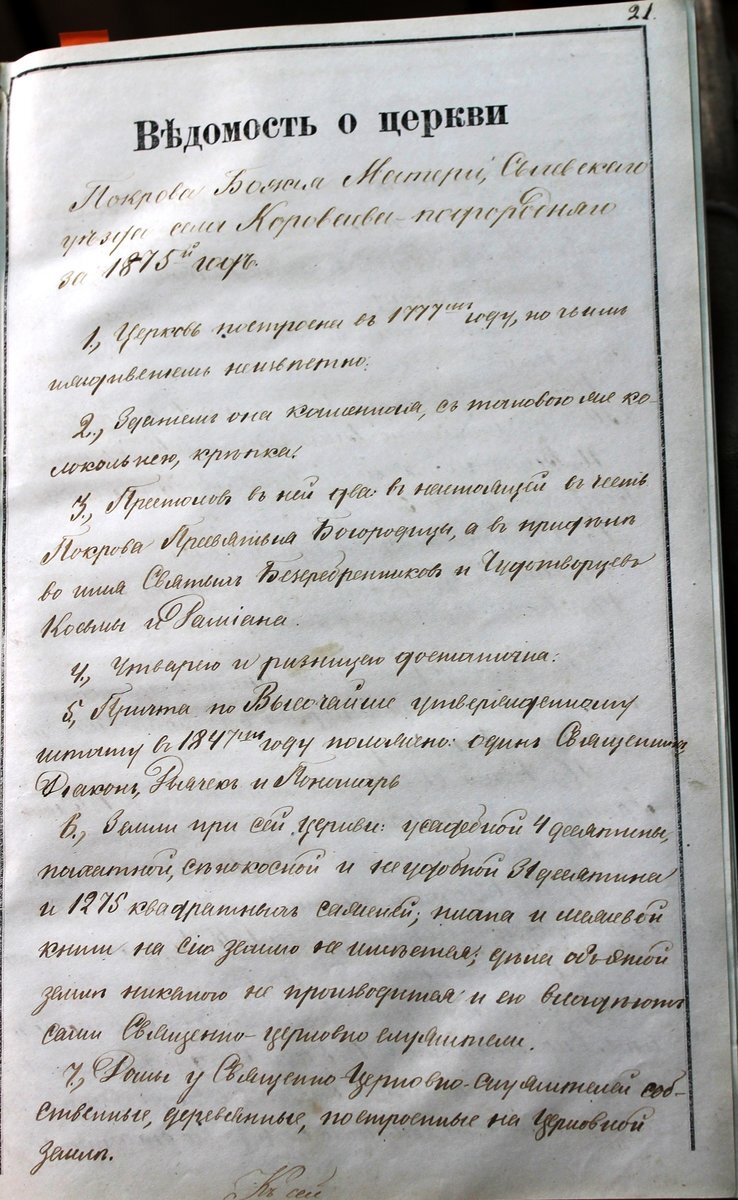 21.
Вѣдомость о церкви
Покрова Божія Матери, Сѣвскаго
уѣзда села Коровкина-подгороднаго
за 1875й годъ.
1., Церковь построена въ 1777мъ году, но чьимъ
иждивеніемъ неизвѣстно.
2., Зданіемъ она каменная, съ таковою же ко-
локольнею, крѣпка.
3., Престоловъ въ ней два: въ настоящей въ честь
Покрова Пресвятыя Богородицы, а въ придѣлѣ
во имя Святыхъ Безсребренниковъ и Чудотворцевъ
Косьмы и Даміана.
4., Утварію и ризницею достаточна.
5., Причта по Высочайше утвержденному
штату въ 1847мъ году положено: одинъ Священникъ,
Діаконъ, Дьячекъ и Пономарь
6., Земли при сей церкви: усадебной 4 десятины,
пахатной, сѣнокосной и неудобной 31 десятина
и 1275 квадратныхъ саженей; плана и межевой
книги на сію землю не имѣется; дѣла объ этой
землѣ никакого не производится и ею владѣютъ
сами Священно-церковно служители.
7., Домы у Священно-Церковно-служителей соб-
ственные, деревянные, построенные на Церковной
землѣ.
Къ сей